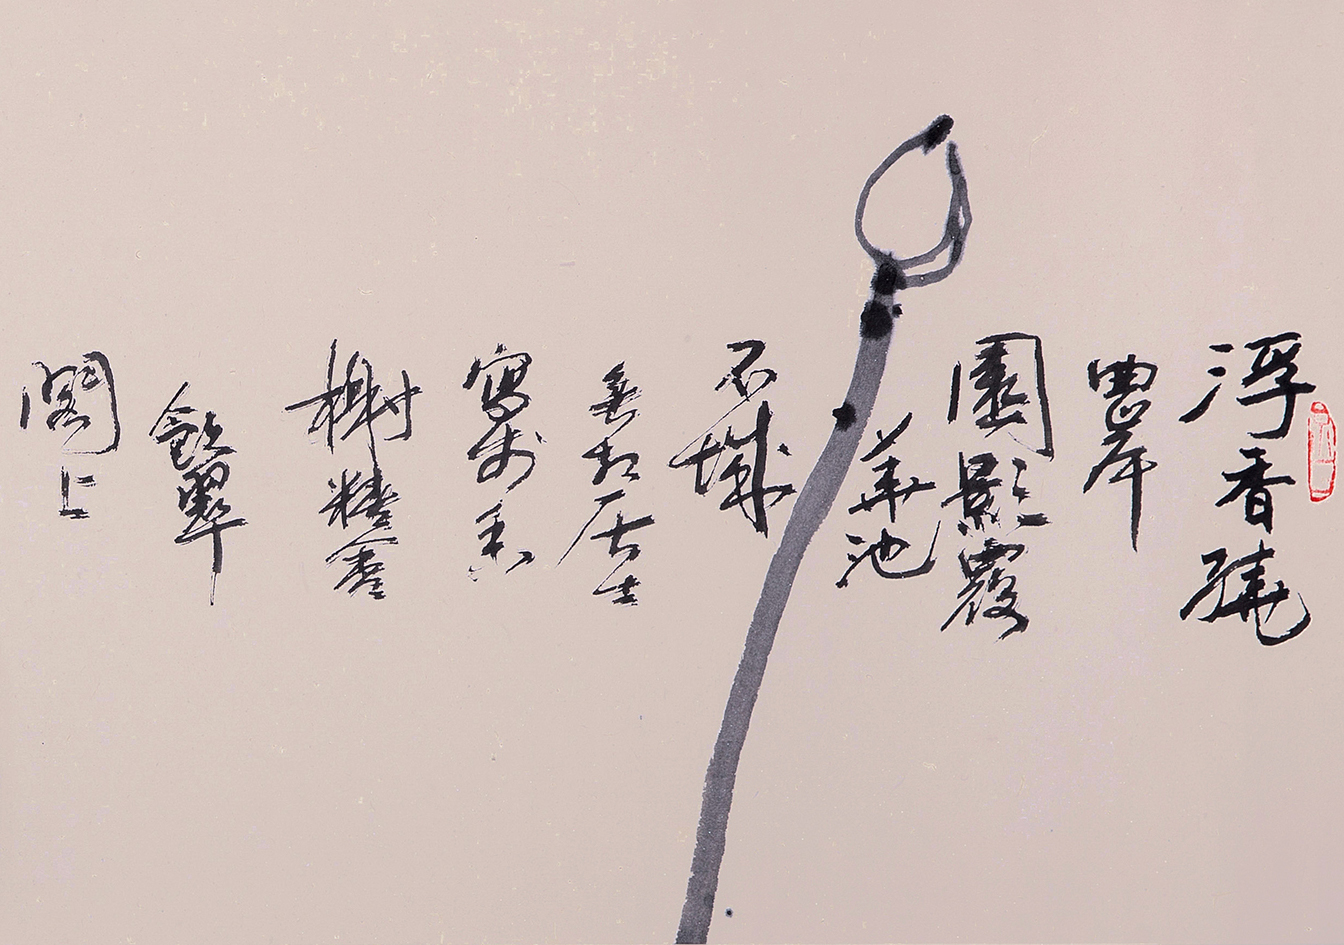 浮香繞
曲岸
圓影覆
華池
石城
無相居士
寫於香
榭精舍
飲翠
閣上